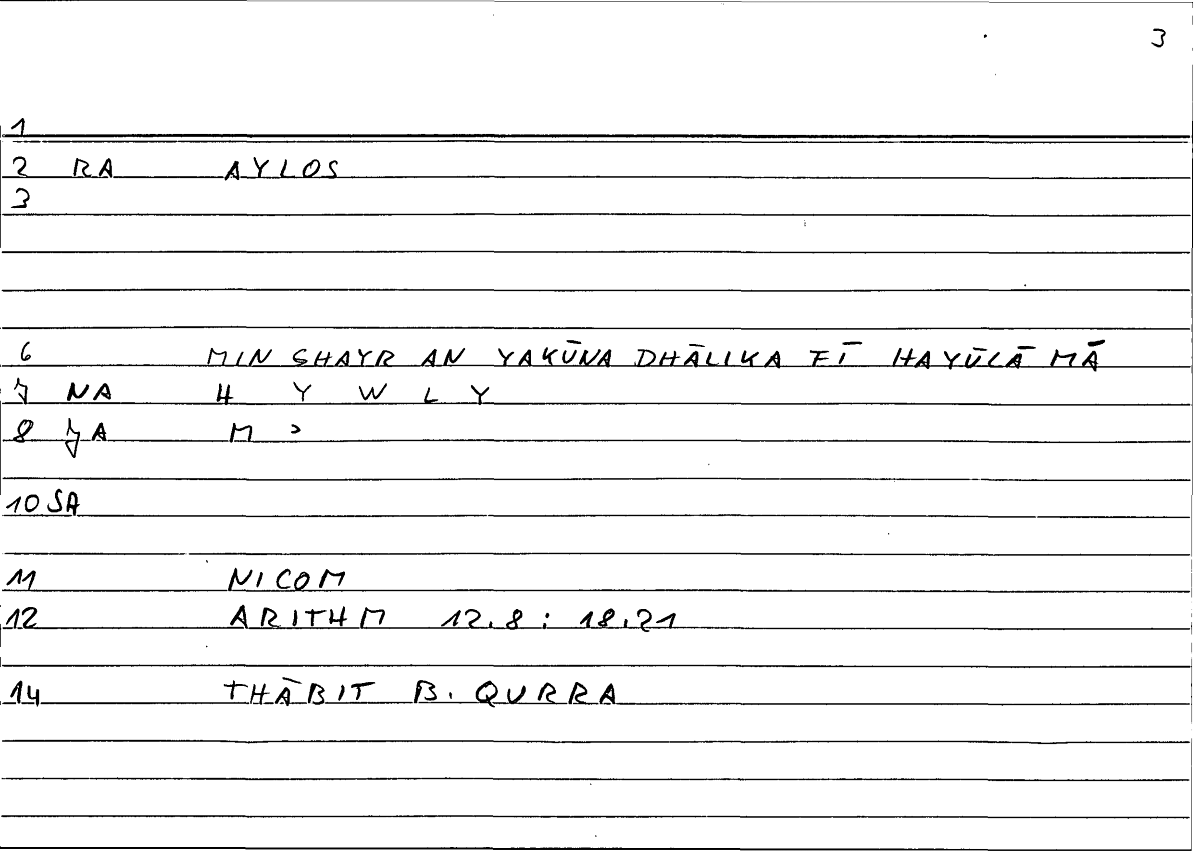 3
1
2 RA AYLOS
3
6 MIN GHAYR AN YAKŪNA DHĀLIKA FĪ HAYŪLĀ MĀ
7 NA H Y W L Y
8 JA M ʾ
10 SA
11 NICOM
12 ARITHM 12.8 : 18.21
14 THĀBIT B. QURRA